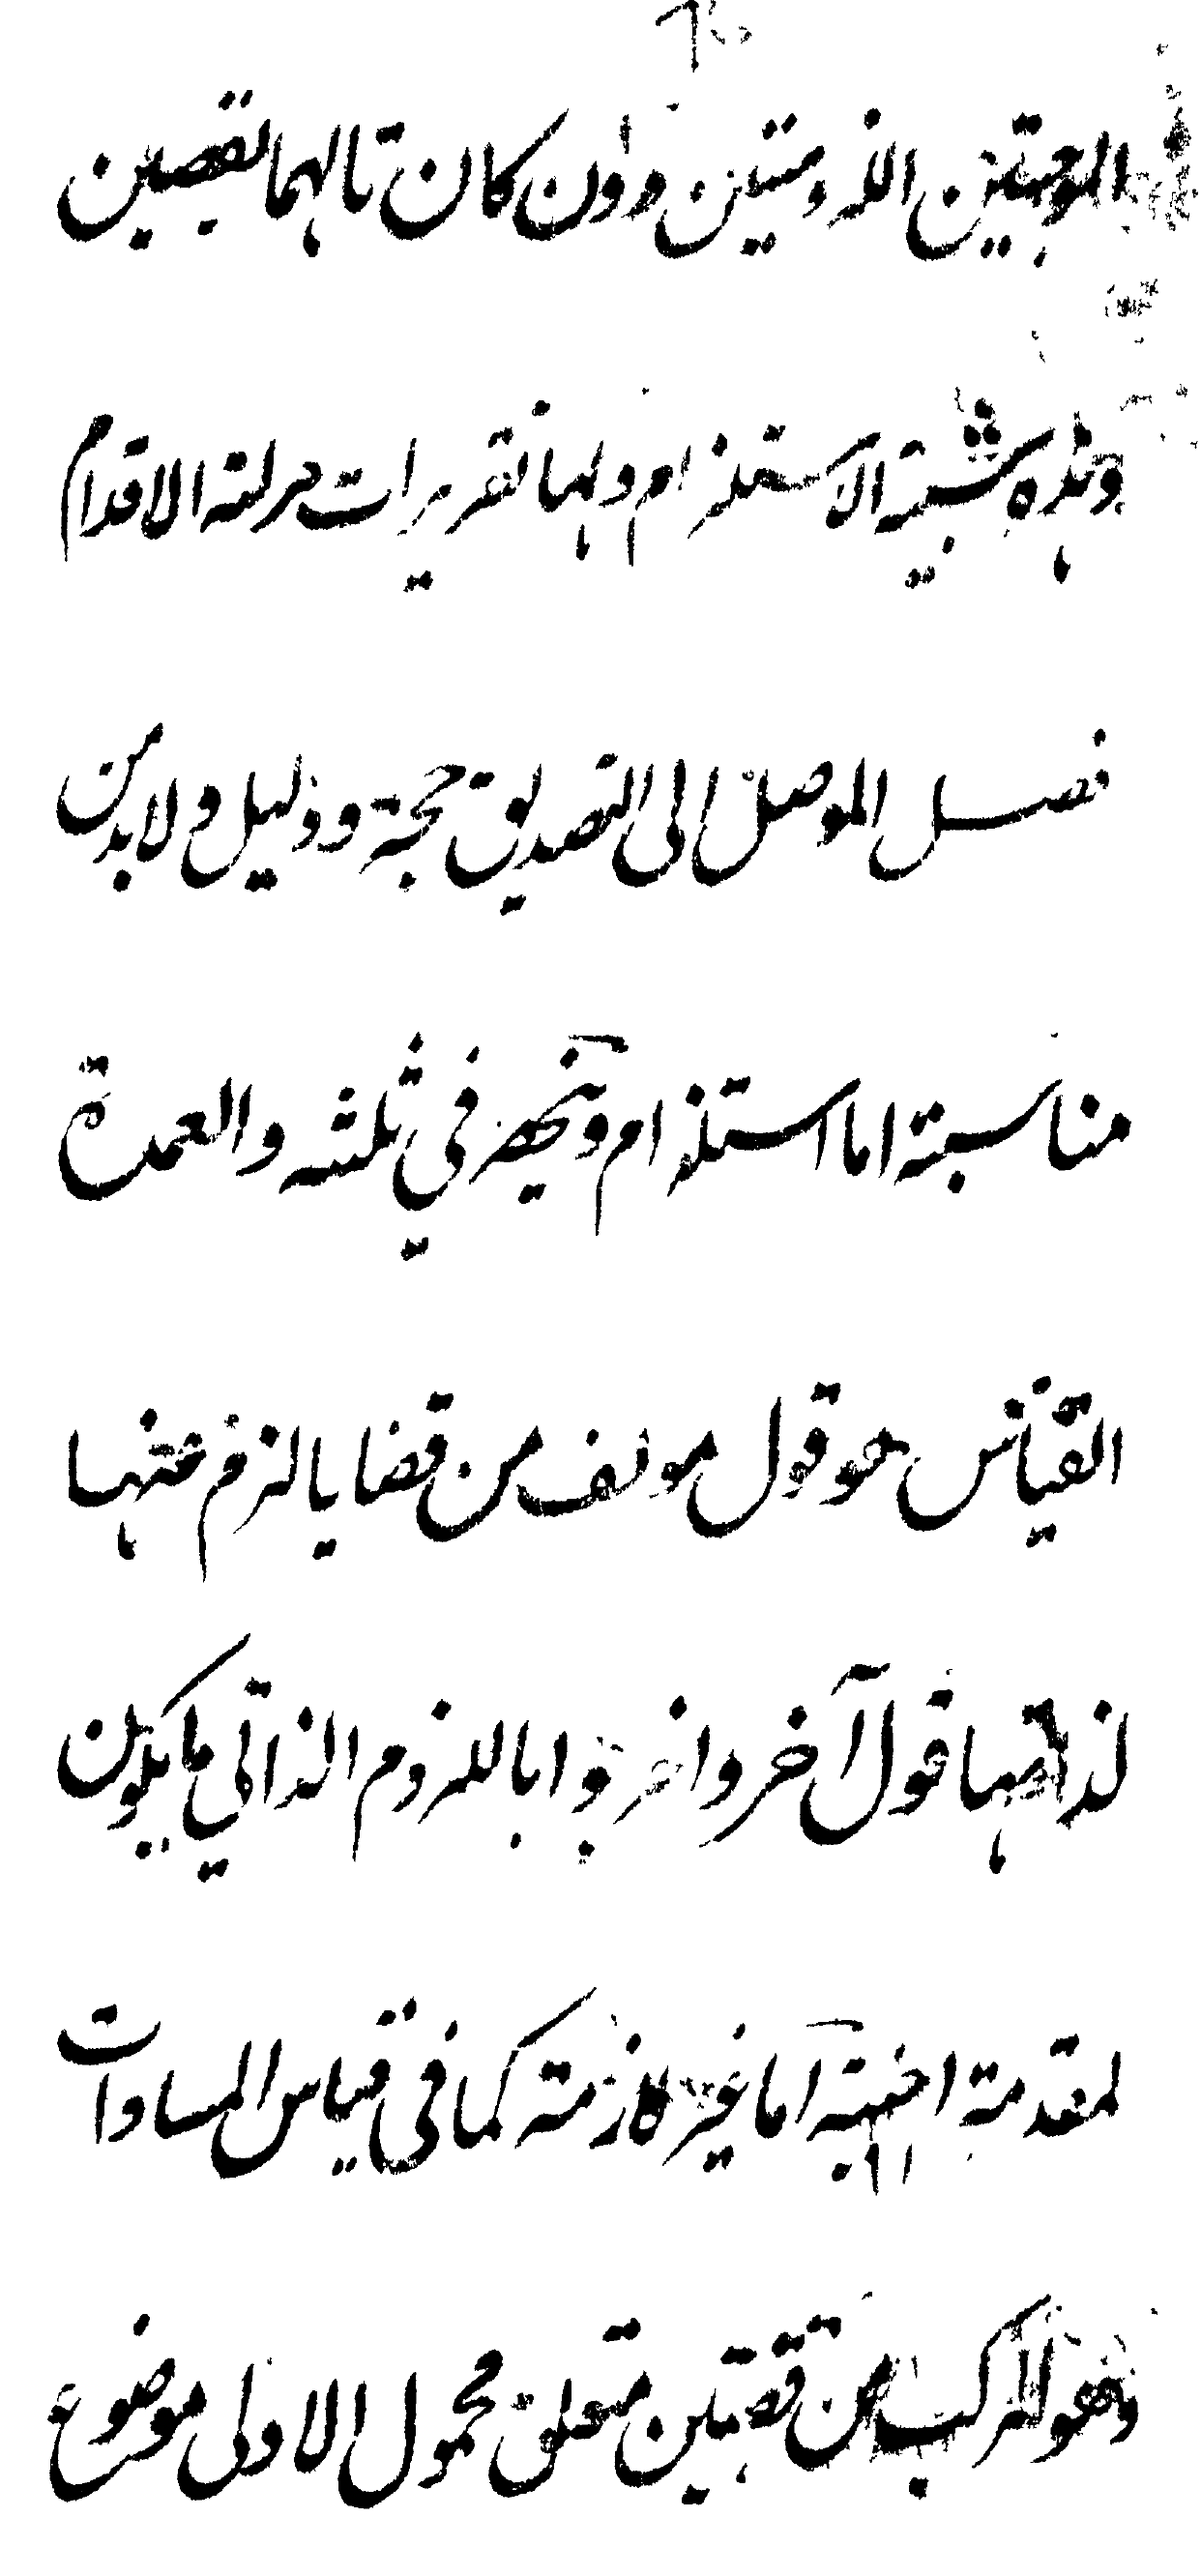 الموجبتين اللزوميتين وان كان تاليهما نقيضين
وهذه شبهة الاستلزام ولها تقريرات مزلة الاقدام
فصل الموصل الى التصديق حجة ودليل ولا بد من
مناسبة اما استلزام وينحصر في ثلثة والعمدة
القياس هو قول مؤلف من قضايا يلزم عنها
لذاتها قول آخر واخرجوا باللزوم الذاتي ما يكون
لمقدمة اجنبية اما غير لازمة كما في قياس المساوات
وهو المركب من قضيتين متعلق محمول الاولى موضوع